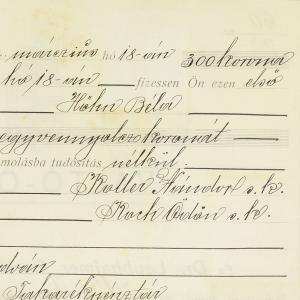 márczius hó 18-án 300 korona
hó 18-án fizessen Ön ezen első
Höhn Béla
egyvennyolcz koronát
molásba tudósítás nélkül:
Koller Nándor s.k.
Koch Ödön s.k.
Takarékpénztár